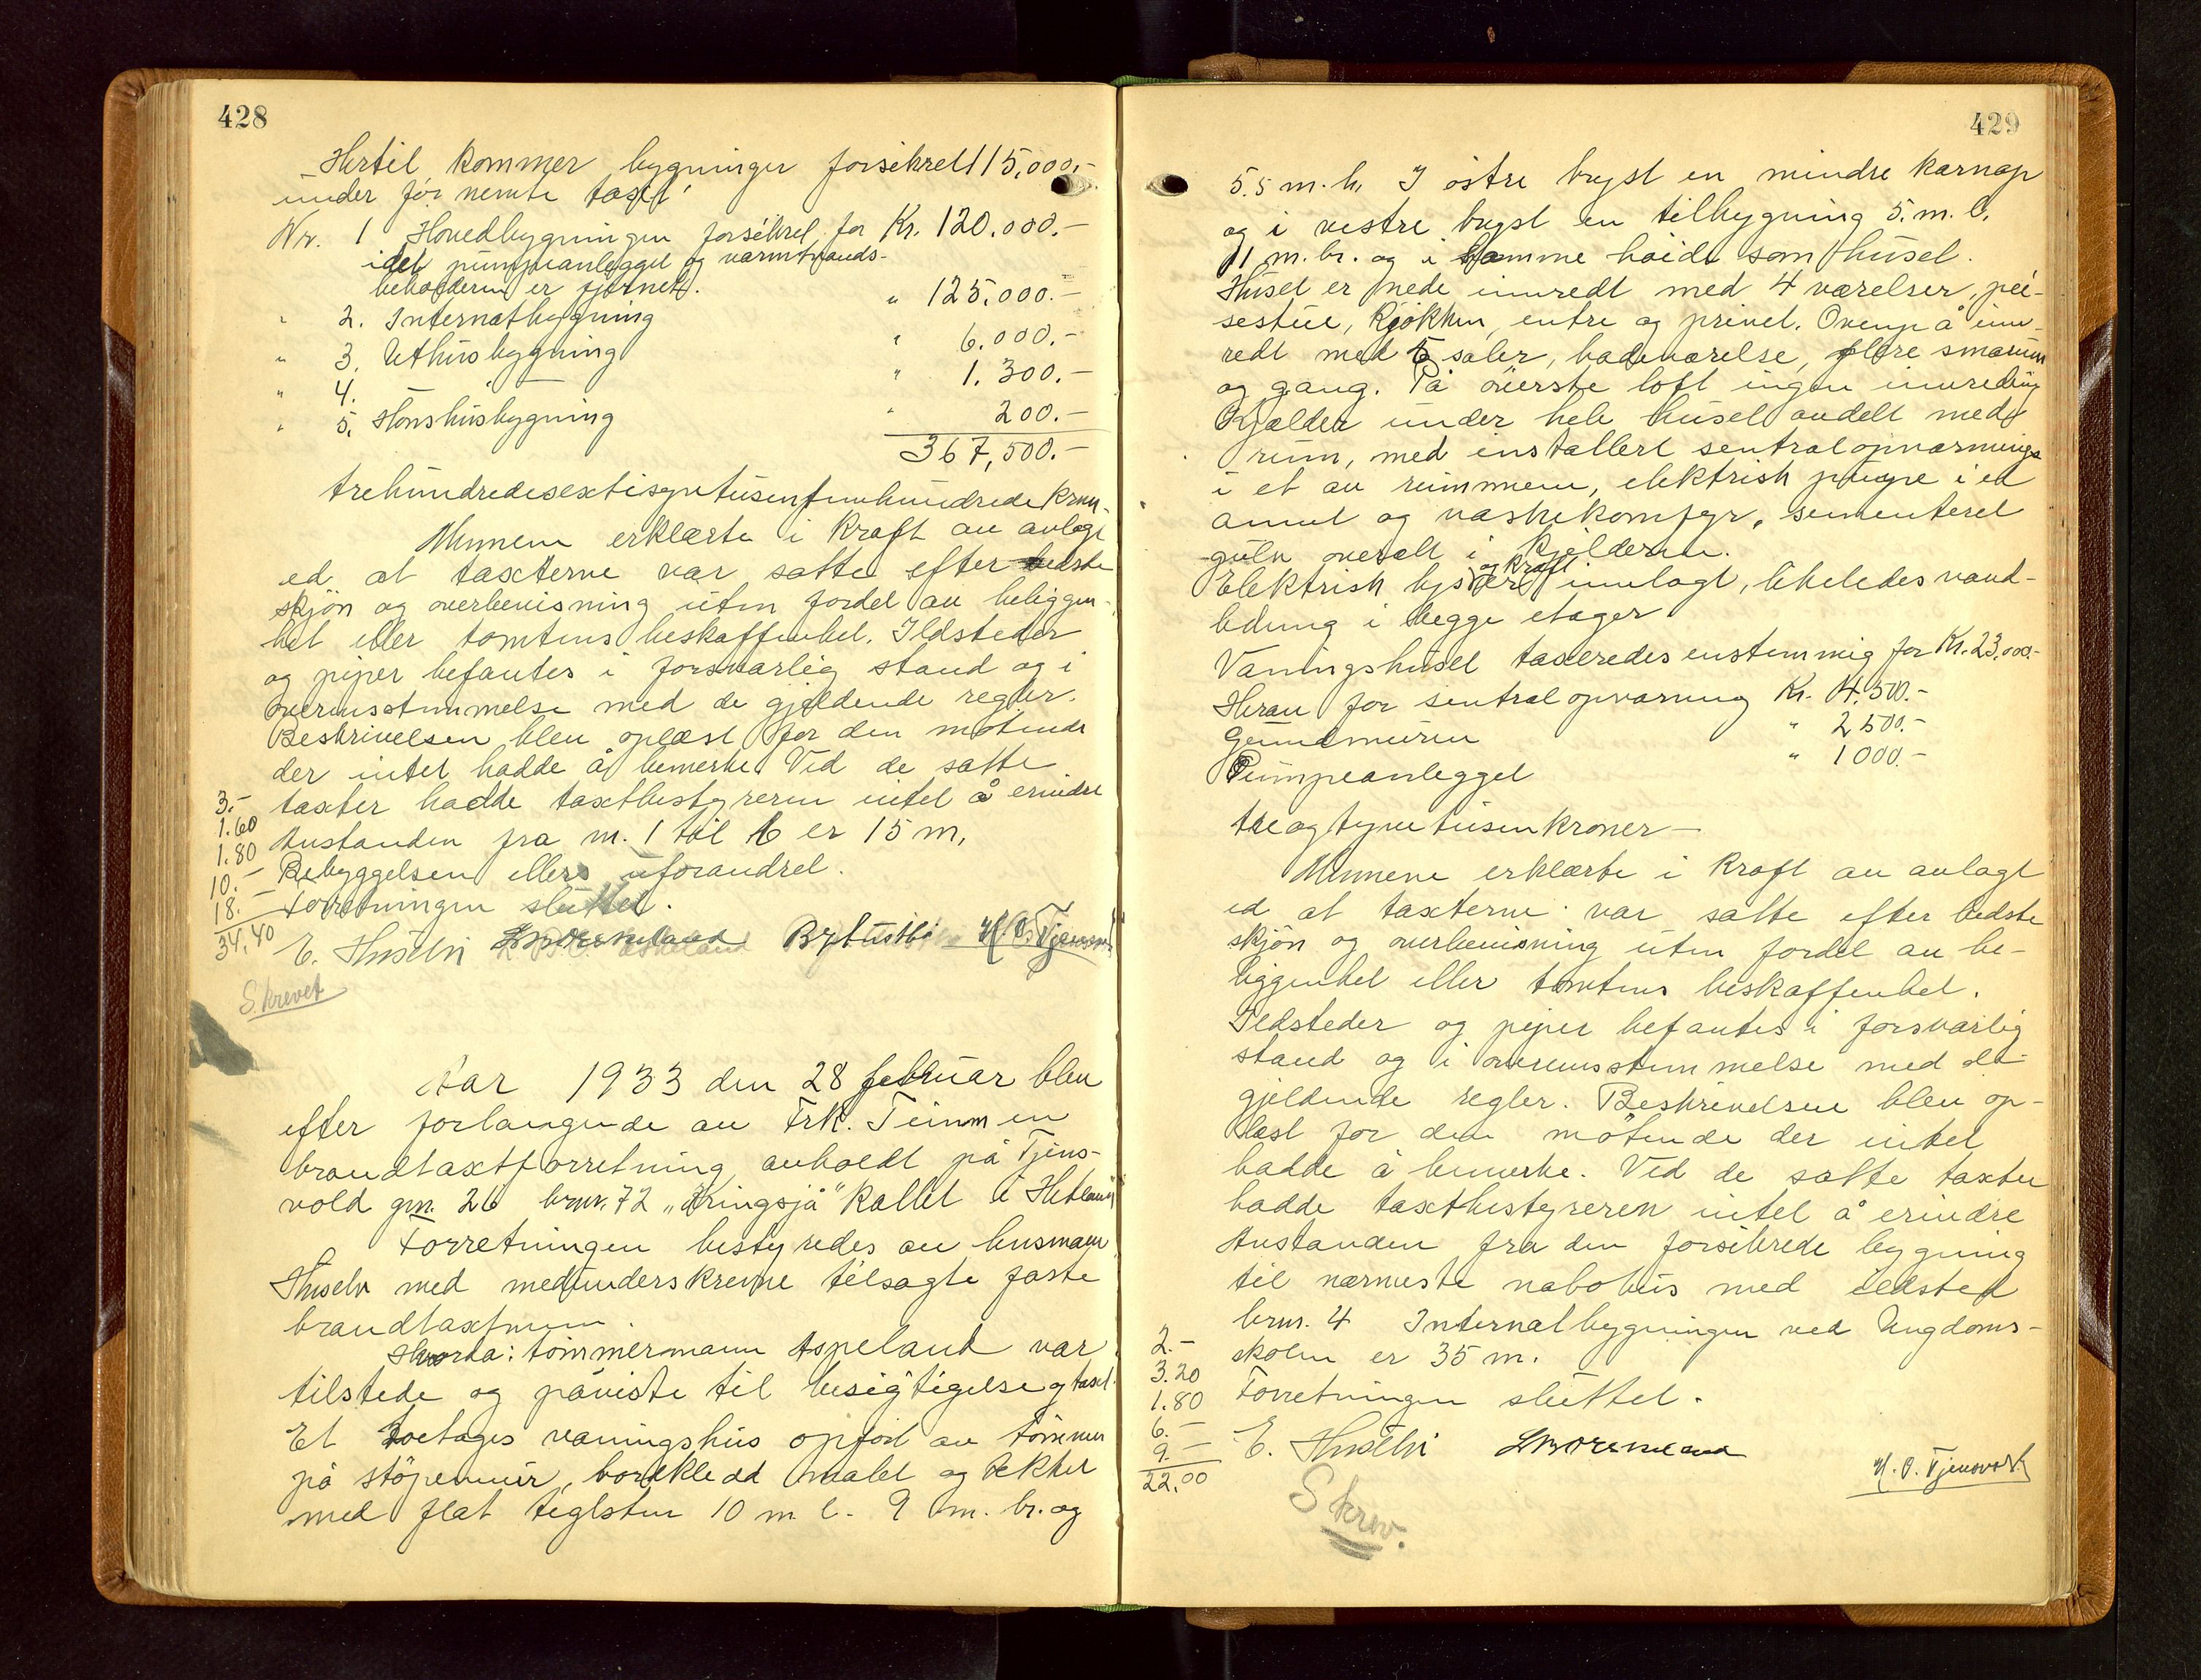 428
Hertil kommer bygninger forsikret 115,000.-
under før nemte taxt
Nr. 1 Hovedbygningen forsikret for Kr. 120.000.-
idet pumpeanlegget og varmtvands-
beholderen er fjernet.
" 2. Internatbygning " 125,000.-
" 3. Uthusbygning " 6.000.-
" 4. " " 1.300.-
" 5. Hønshusbygning " 200.-
367,500.-
trehundredesextisyvtusenfemhundrede kron-
Mennene erklærte i kraft av avlagt
ed at taxterne var satte efter bedste
skjøn og overbevisning uten fordel av beliggen-
het eller tomtens beskaffenhet. Ildsteder
og piper befantes i forsvarlig stand og i
overensstemmelse med de gjeldende regler.
Beskrivelsen blev oplæst for den møtende
der intet hadde å bemerke. Ved de satte
3.- taxter hadde taxtbestyreren intet å erindre
1.60 Avstanden fra nr. 1 til 6 er 15 m,
1.80 Bebyggelsen ellers uforandret.
10.-
18.- Forretningen sluttet.
34,40 E. Huseby Bybustbø H. O. Tjensvold
Skrevet
Aar 1933 den 28 februar blev
efter forlangende av Frk. Teinm en
brandtaxtforretning avholdt på Tjens-
vold gnr. 26 brnr. 72 "Kringsjå" kallet i Hetland
Forretningen bestyredes av lensmann
Huseby med medunderskrevne tilsagte faste
brandtaxtmenn.
Hvorda: tømmermann Aspeland var
tilstede og påviste til besigtigelse og taxt.
Et toetages våningshus opført av tømmer
på støpemur, bordkledd malet og tekket
med flat teglsten 10 m l. 9 m. br. og
429
5.5 m. h. I østre bryst en mindre karnap
og i vestre bryst en tilbygning 5. m. l.
11 m. br. og i samme høide som huset.
Huset er nede innredt med 4 værelser, pei-
sestue, kjøkken, entre og privet. Ovenpå inn-
redt med 5 saler, badeværelse, flere smårum
og gang. På øverste loft ingen innreding
Kjælder under hele huset avdelt med
rum, med installert sentralopvarmings
i et av rummene, elektrisk pumpe i et
annet og vaskekomfyr, sementeret
gulv overalt i kjelderen.
Elektrisk lys og kraft er innlagt, likeledes vand-
ledning i begge etager
Våningshuset taxeredes enstemmig for Kr. 23.000.-
Herav for sentralopvarming Kr. 4,500.-
Grundmuren " 2500.-
Pumpeanlegget " 1000.-
treogtyvetusen kroner-
Mennene erklærte i kraft av avlagt
ed at taxterne var satte efter bedste
skjøn og overbevisning uten fordel av be-
liggenhet eller tomtens beskaffenhet.
Ildsteder og piper befantes i forsvarlig
stand og i overensstemmelse med de
gjeldende regler. Beskrivelsen blev op-
læst for den møtende der intet
hadde å bemerke. Ved de satte taxter
hadde taxtbestyreren intet å erindre
Avstanden fra den forsikrede bygning
til nærmeste nabohus med ildsted
brnr. 4 Internatbygningen ved Ungdoms-
2.- skolen er 35 m.
3.20
1.80 Forretningen sluttet.
6.-
9.- E. Huseby H. O. Tjensvold
22,00
Skrev.